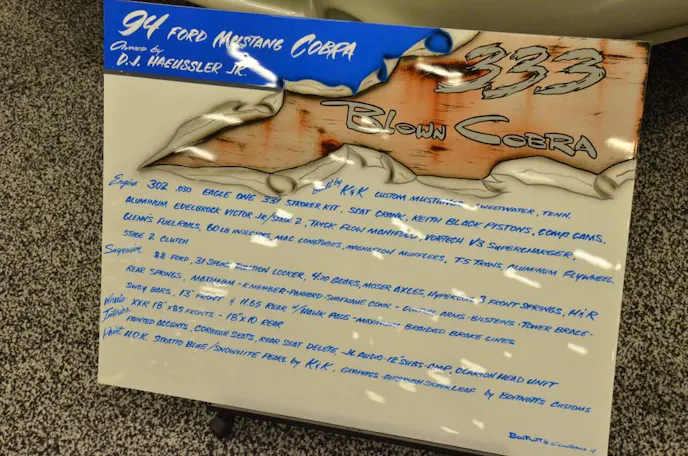 94 FORD MUSTANG COBRA
OWNED BY
D.J. HAEUSSLER JR.
333
BLOWN COBRA
Engine 302 .030 EAGLE ONE 331 STROKER KIT, SCAT CRANK, KEITH BLACK PISTONS, COMP CAMS,
Built by K&K CUSTOM MUSTANGS, SWEETWATER, TENN.
ALUMINUM EDELBROCK VICTOR JR/STAGE 2, TRICK FLOW MANIFOLD, VORTECH V3 SUPERCHARGER,
GLENN'S FUEL RAILS, 60LB INJECTORS, MAC LONGTUBES, MAGNAFLOW MUFFLERS, T5 TRANS, ALUMINUM FLYWHEEL,
STAGE 2 CLUTCH
Suspension 8.8 FORD, 31 SPLINE TRACTION LOCKER, 4.10 GEARS, MOSER AXLES, HYPERCOIL FRONT SPRINGS, H&R
REAR SPRINGS, MAXIMUM-K-MEMBER-PANHARD-SUBFRAME CONN.- CONTROL ARMS-BILSTEINS-TOWER BRACE-
SWAY BARS, 13" FRONT & 11.65 REAR W/HAWK PADS-MAXIMUM BRAIDED BRAKE LINES
Wheels XXR 18"X8.5 FRONTS - 18"X10 REAR
Interior PAINTED ACCENTS, CORBEAU SEATS, REAR SEAT DELETE-JL AUDIO-12"SUBS-AMP, CLARION HEAD UNIT
Paint H.O.K. STRATTO BLUE/SNOWHITE PEARL BY K&K, GRAPHICS-AIRBRUSH SILVER LEAF by BOITNOTT'S CUSTOMS